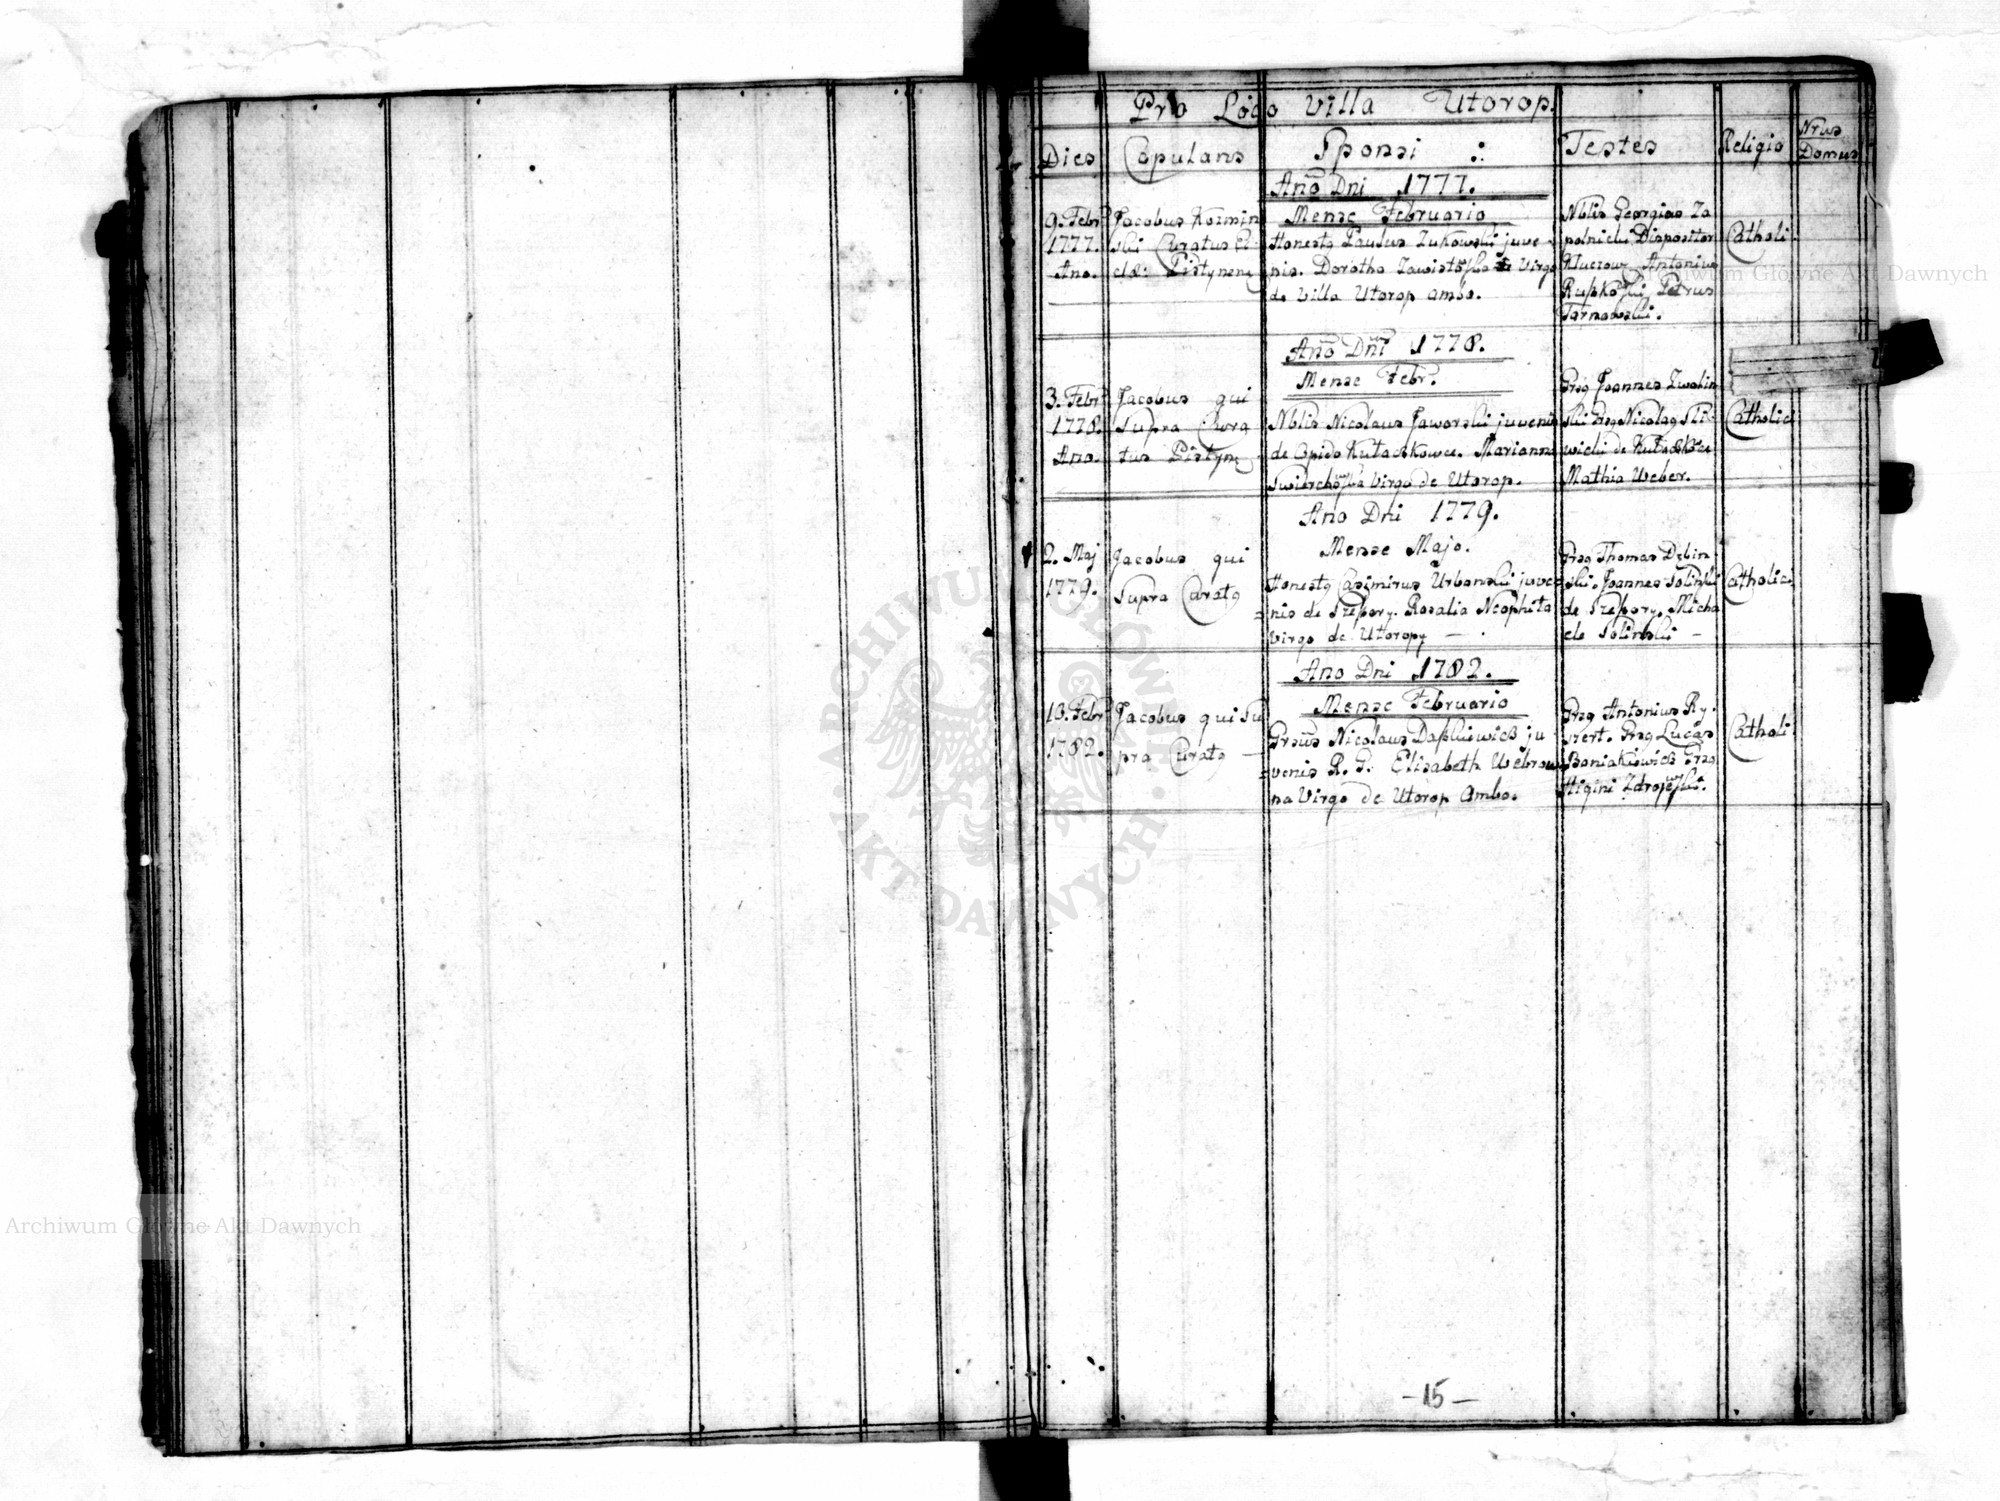 Pro Loco Villa Utorop.
Dies Copulans Sponsi :: Testes Religio Nrus Domus
Ano Dni 1777.
Mense Februario
9. Febr 1777. Ano.
Jacobus Kozmin
ski Curatus Ec
clae: Pistynens
Honestg Paulus Zukowski juve
nis. Dorotha Zawistowska Virgo
de Villa Utorop ambo.
Nblis Georgius Za
polnicki Dispositor
Kluczow, Antonius
Petrus
Tarnawski.
Catholi
Ano Dni 1778.
Mense Febr.
3. Febr 1778. Ano.
Jacobus qui
Supra Cura
tus Pistyn
Nblis Nicolaus Jaworski juvenis
de Opido Kułaczkowce. Marianna
Virgo de Utorop.
Grsg Joannes Zwolin
ski Grsg Nicolag Sli
wicki de
Mathia Weber.
Catholici
Ano Dni 1779.
Mense Majo.
2. Maj 1779.
Jacobus qui
Supra Curatg
Honestg Casimirus Urbanski juve
nis de Szepory. Rosalia Neophita
Virgo de Utoropy — .
Grsg Thomas Dębin
ski. Joannes Solinski
de Szepory. Micha
ele Solinski —
Catholici
Ano Dni 1782.
Mense Februario
13. Febr 1782.
Jacobus qui Su
pra Curatg —
Nicolaus ju
venis R. G. Elisabeth Webrow
na Virgo de Utorop Ambo.
Grsg Antonius Ry
Grsg Lucas
Higini
Catholi
- 15 -
Archiwum Główne Akt Dawnych
Archiwum Główne Akt Dawnych
ARCHIWUM GŁÓWNE · AKT DAWNYCH ·